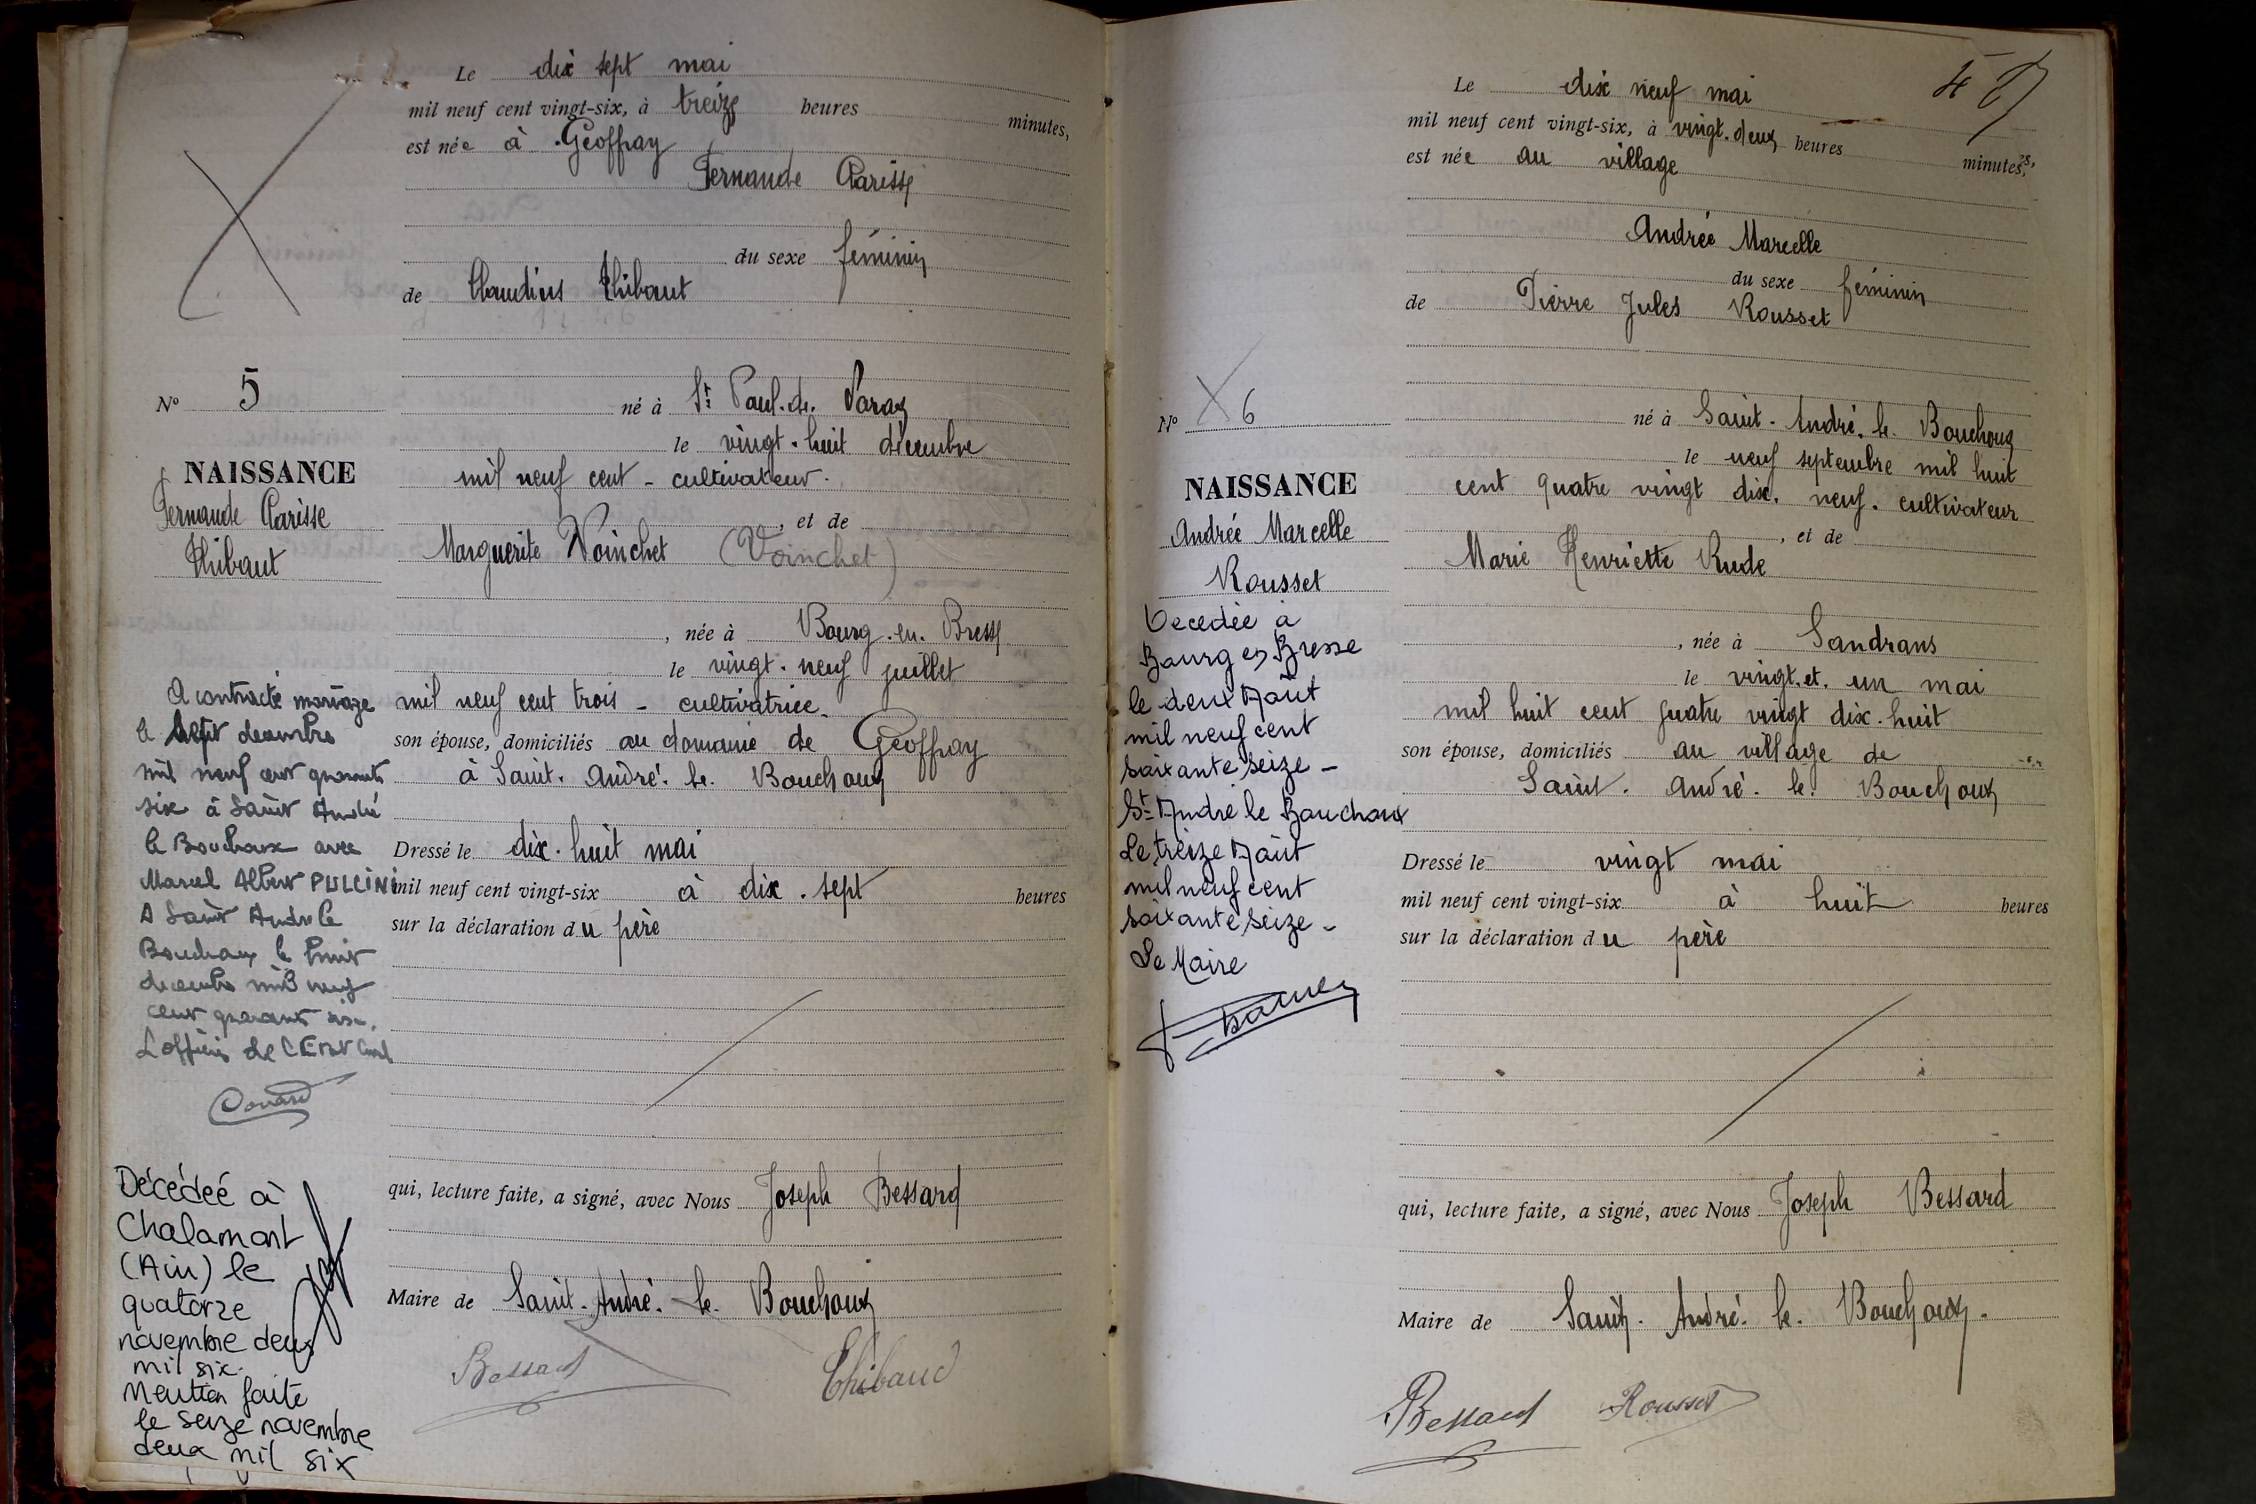 Le dix sept mai
mil neuf cent vingt-six, à treize heures minutes,
est née à Geoffray
Fernande Clarisse
du sexe féminin
de Claudius Thibaut
né à St Paul-de-Varax
le vingt-huit décembre
mil neuf cent - cultivateur.
, et de
Marguerite Voinchet (Voinchet)
, née à Bourg-en-Bresse
le vingt-neuf juillet
mil neuf cent trois - cultivatrice
son épouse, domiciliés au domaine de Geoffray
à Saint-André-le-Bouchoux
Dressé le dix-huit mai
mil neuf cent vingt-six à dix-sept heures
sur la déclaration du père
qui, lecture faite, a signé, avec Nous Joseph Bessard
Maire de Saint-André-le-Bouchoux
Bessard Thibaud
No 5
NAISSANCE
Fernande Clarisse
Thibaut
A contracté mariage
le décembre
mil neuf cent quarante
six à Saint André
le Bouchoux avec
Marcel Albert PULCINI
A Saint André le
Bouchoux le huit
décembre mil neuf
cent quarante six.
L'officier de l'Etat Civil
Décédée à
Chalamont
(Ain) le
quatorze
novembre deux
mil six.
Mention faite
le seize novembre
deux mil six
Le dix neuf mai
mil neuf cent vingt-six, à vingt-deux heures minutes,
est née au village
Andrée Marcelle
du sexe féminin
de Pierre Jules Rousset
né à Saint-André-le-Bouchoux
le neuf septembre mil huit
cent quatre vingt dix-neuf. cultivateur
, et de
Marie Henriette Rude
, née à Sandrans
le vingt-et-un mai
mil huit cent quatre vingt dix-huit
son épouse, domiciliés au village de
Saint-André-le-Bouchoux
Dressé le vingt mai
mil neuf cent vingt-six à huit heures
sur la déclaration du père
qui, lecture faite, a signé, avec Nous Joseph Bessard
Maire de Saint-André-le-Bouchoux.
Bessard Rousset
No 6
NAISSANCE
Andrée Marcelle
Rousset
Décédée à
Bourg en Bresse
le deux Août
mil neuf cent
soixante seize -
St André le Bouchoux
Le treize Août
mil neuf cent
soixante seize -
Le Maire